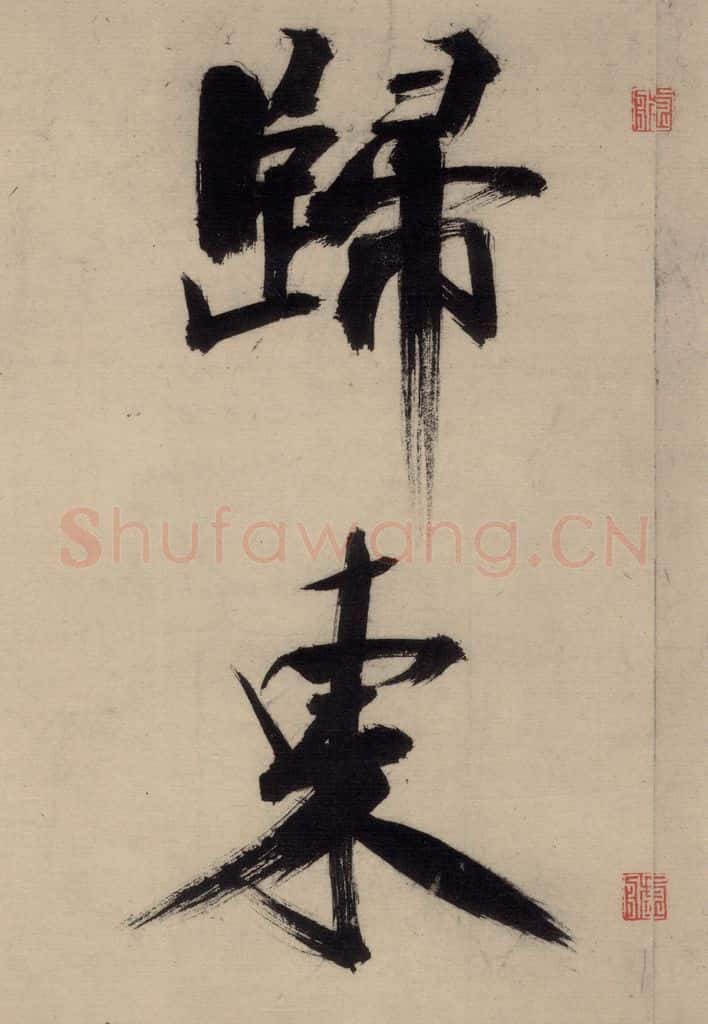 歸
東
Shufawang.CN